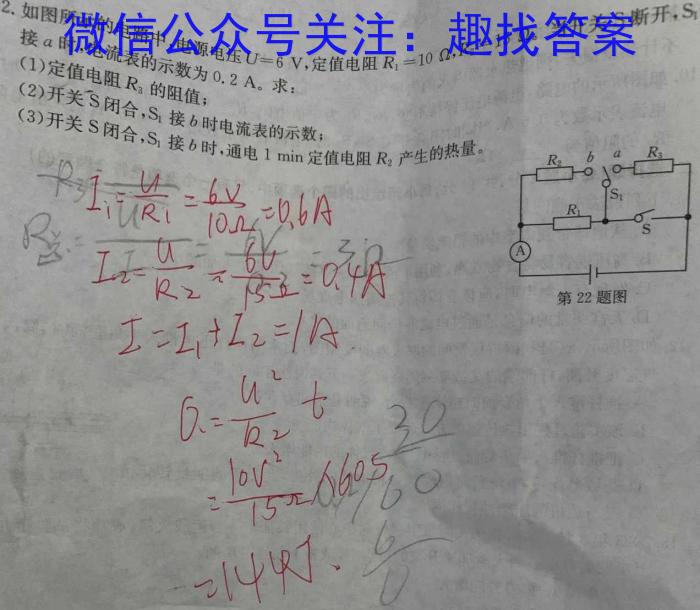 微信公众号关注：趣找答案
2. 如图所 的电路中,电源电压U=6 V,定值电阻 R₁=10 Ω, 开关S断开,S₁
接 a 时,电流表的示数为 0.2 A。求:
(1)定值电阻 R₃ 的阻值;
(2)开关 S 闭合,S₁ 接 b 时电流表的示数;
(3)开关 S 闭合,S₁ 接 b 时,通电 1 min 定值电阻 R₂ 产生的热量。
R₂ b a R₃
S₁
R₁
S
A
第 22 题图
I₁=U/R₁=6V/10Ω=0.6A
I₂=U/R₂=6V/15Ω=0.4A
I=I₁+I₂=1A
Q=U²/R₂ t
=10V²/15Ω×60S
=144J.
30
60
6
0